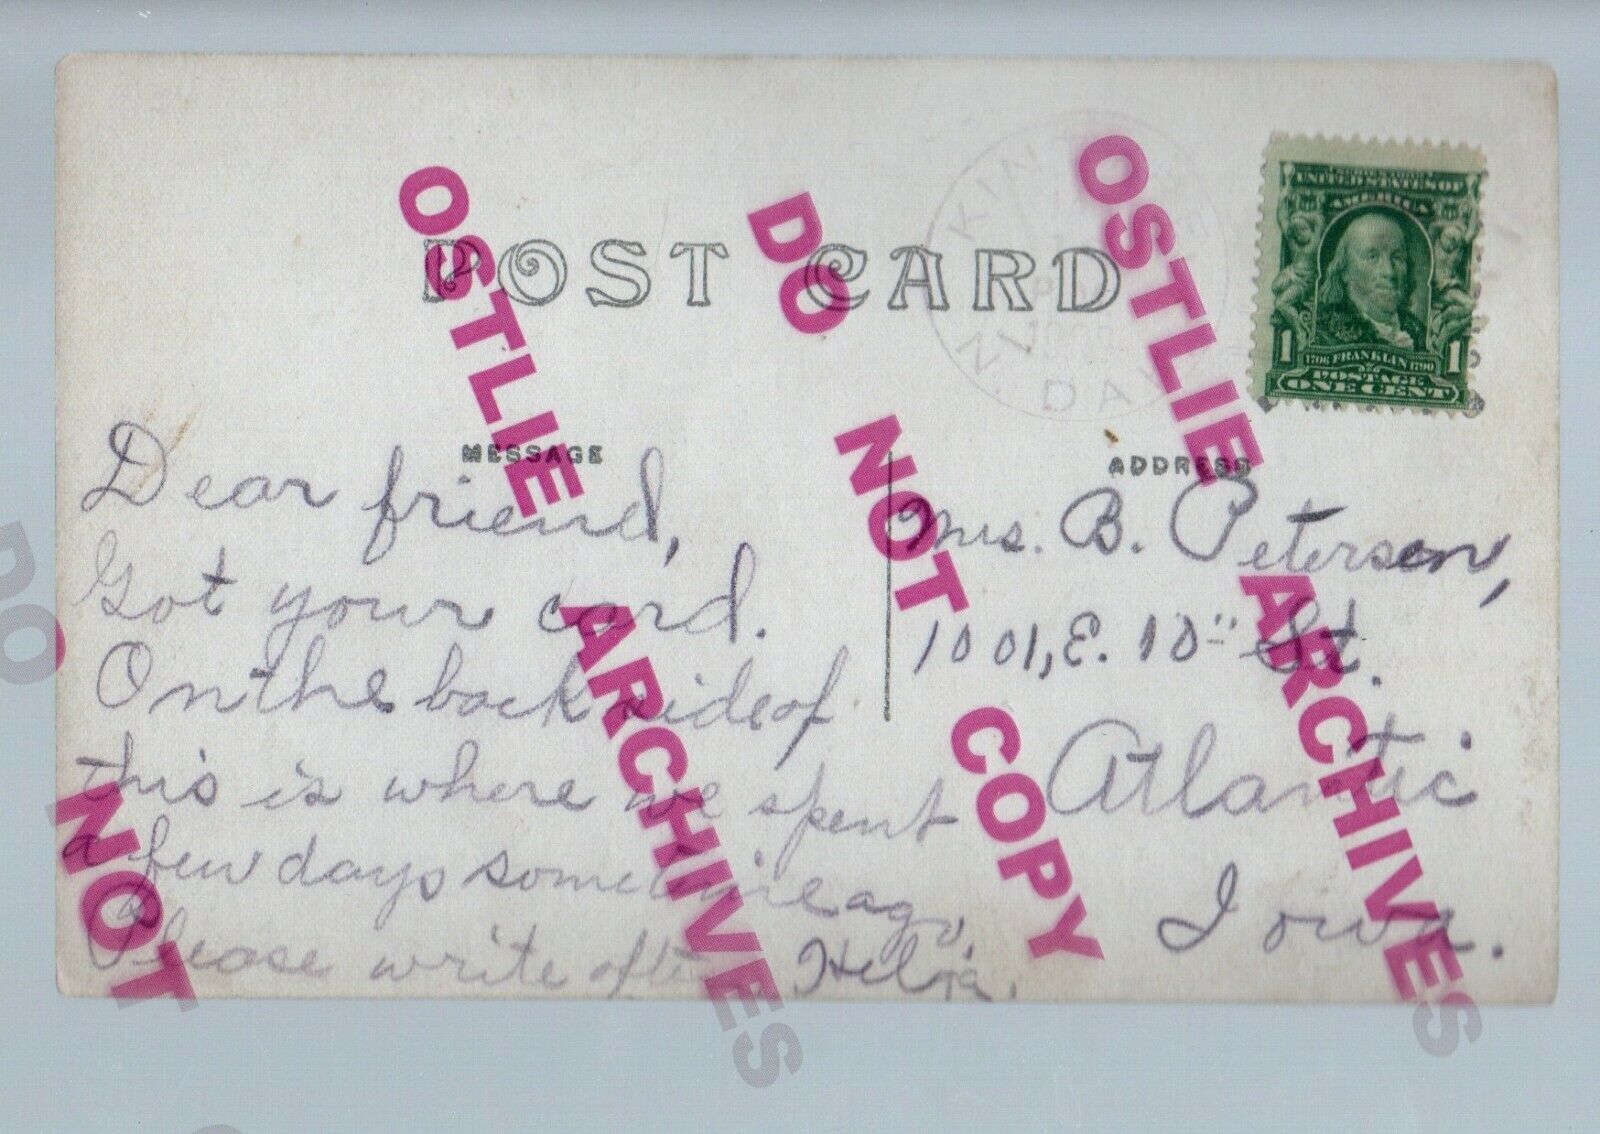 POST CARD
KINTYRE
N. DAK.
UNITED STATES OF
AMERICA
1 1706 FRANKLIN 1790 1
POSTAGE
ONE CENT
MESSAGE
ADDRESS
Dear friend,
Got your card.
On the back side of
this is where we spent
a few days sometime ago.
Please write often. Helga.
Mrs. B. Petersen,
1001, E. 10" St.
Atlantic
Iowa.
OSTLIE ARCHIVES
DO NOT COPY
OSTLIE ARCHIVES
DO NOT